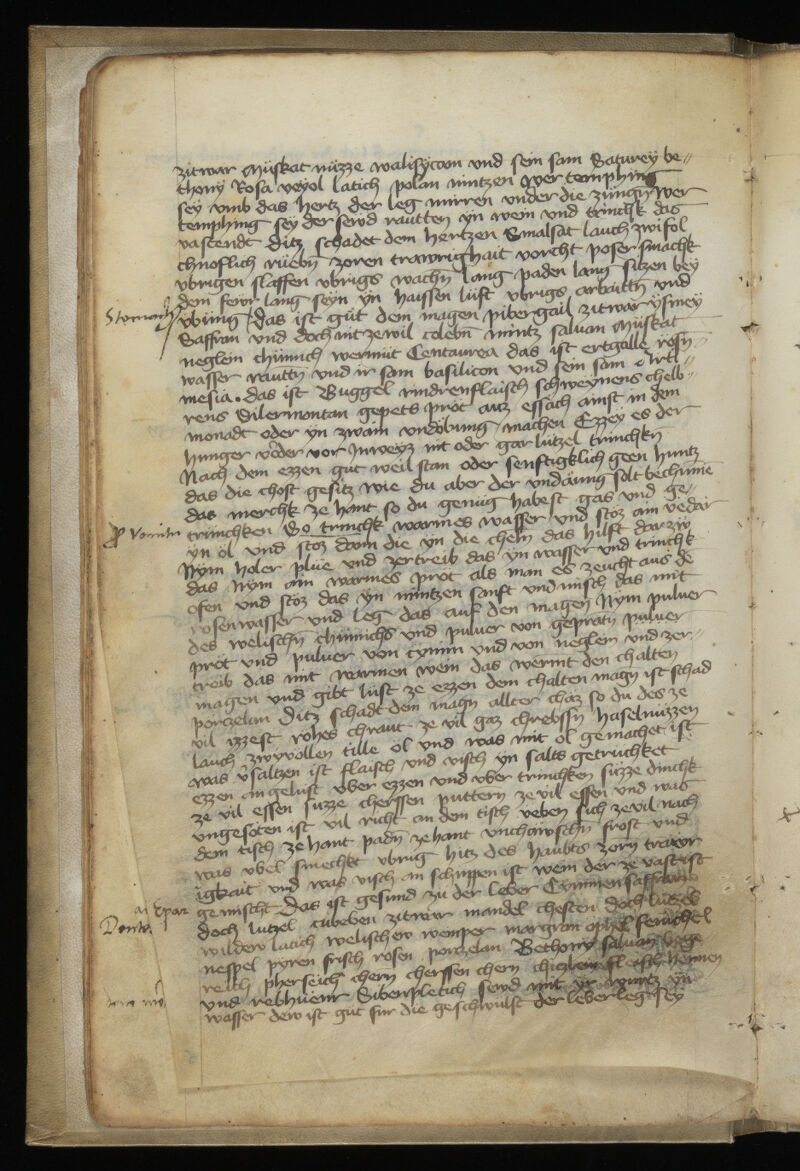 zitwar Müskat nüzze walisycon und sein sam Saturey be„
thony Rosa veyol latich polan mintzen wer temphing
sey vmb das hertz der leg mirren vnder die züngn wer
temphing sey der sewd rautten yn wein und trinchk das
vastendt Ditz schadet dem hertzen Smalsat lauch zwifol
chnoflich rüebn zoren trawrighait vorcht poser smachk
vbrigen slaffen vbrigs wachn lang paden lang sitzen bey
dem fewr lang seyn yn haissen lüft vbrigs arbaittn vnd
vbung Das ist güt dem magen pibergail zitwar ysmey
Saffran und doch nit ze vil mintz saluan Müskat
neglein chümich wermüt Centaurea das ist ertgalle rosn
wasser rauttn vnd ir sam basilicon und sein sam Arti
mesia. das ist Buggel rindrenflaisch schweynens chelb„
rens Silermontan gepets prot auz essäch ainst in dem
monadt oder yn zwain vndobung machen Ezzey es der
hunger vor nit oder gar lützel trinchkn
Nach dem ezzen güt weil stan oder senftigklich geen huntz
das die chost gesitz wie du aber der vndäüng solt bechüme
das merchk ze hant so du genüg habest gas vnd ge„
trinchken So trinchk warmes wasser vnd stoz ain vedar
yn öl vnd stoz dann die yn die cheln das hilft darzw
Nym holer plüe vnd zertreib das yn wasser vnd trinchk
das Nym ain warmes prot als man es zeucht aus de
ofen vnd stoz das yn mintzen sanft vnd misch das mit
rosenwasser vnd leg das auf den magen Nym puluer
des welischn chümichs vnd puluer von gepratn puluer
prot vnd puluer von cymin vnd von neglein vnd zer„
treib das mit warmen wein das wermt den chalten
magen vnd gibt lüst ze ezzen dem chalten magn ist schad
porczelan Ditz schadt dem magn allter chäz so du des ze
vil izzest rohes chraut ze vil gaz chrebssn haselnüzzen
lauch zwyvollen tille öl vnd was mit öl gemachet ist
was vsaltzen ist flaisch vnd visch yn salts getruchket
ezzen an gelüst vber ezzen vnd vber trinchken süzze dinchk
ze vil essen süzze cherssen puttern ze vil essen vnd was
vngesoten ist vil richt an dem tisch veben sich ze vil nach
dem tisch ze hant padn ze hant vnchawschn frost vnd
was vbel smechkt vbrig hitz des haubts zorn trawr
igkait vnd was visch an schüppen ist wein der ze vast ist
gemischt Das ist gesund zu der leber Cyminen saffran
doch lutzel cubeben zitwar mandel chesten doch lutzel
wilden latich welischew wemper margran opfel fenichel
nespel pyren frisch rosen porczelan Bethony saluan wege
reich pherseich chern cherssen chern flaisch hennen
vnd rebhüenr Sibenpletich sewd mit yr würtz yn
wasser dew ist güt für die geschwulst der leber leg sey
Stomach
Vomitu
Epar